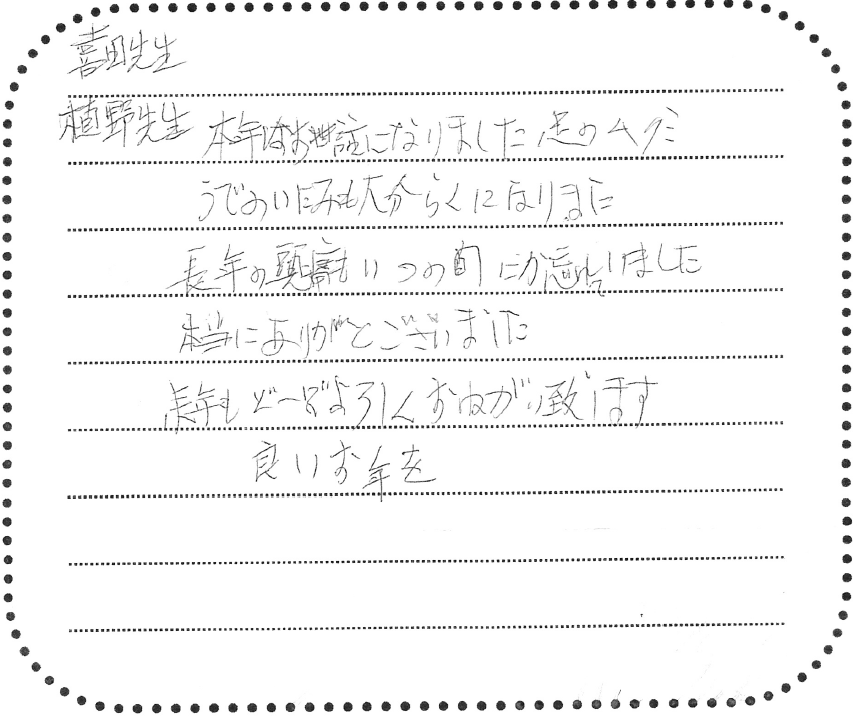 喜田先生
植野先生 本年はお世話になりました 足のムクミ
うでのいたみも大分らくになりました
長年の頭痛もいつの間にか忘れていました
本当にありがとございました
来年もどーぞよろしくおねがい致します
良いお年を